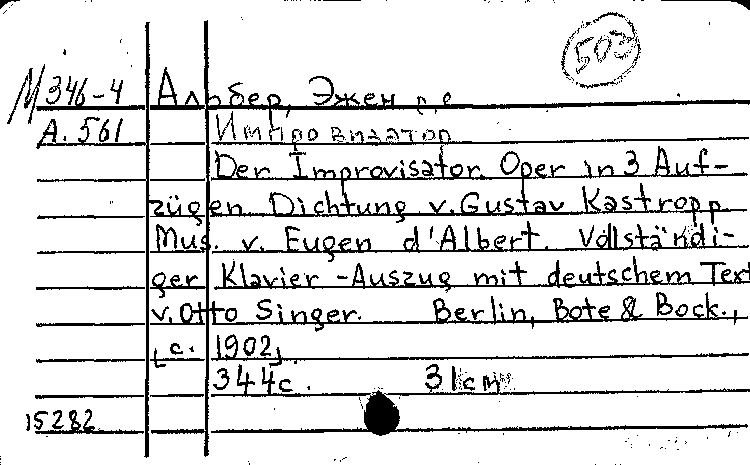 503
М 346-4 Альбер, Эжен д'
А. 561 Импровизатор
Der Improvisator. Oper in 3 Auf-
zügen Dichtung v. Gustav Kastropp
Mus. v. Eugen d'Albert. Vollständi-
ger Klavier-Auszug mit deutschem Text
v. Otto Singer. Berlin, Bote & Bock.,
[c. 1902].
344с. 31см
15282